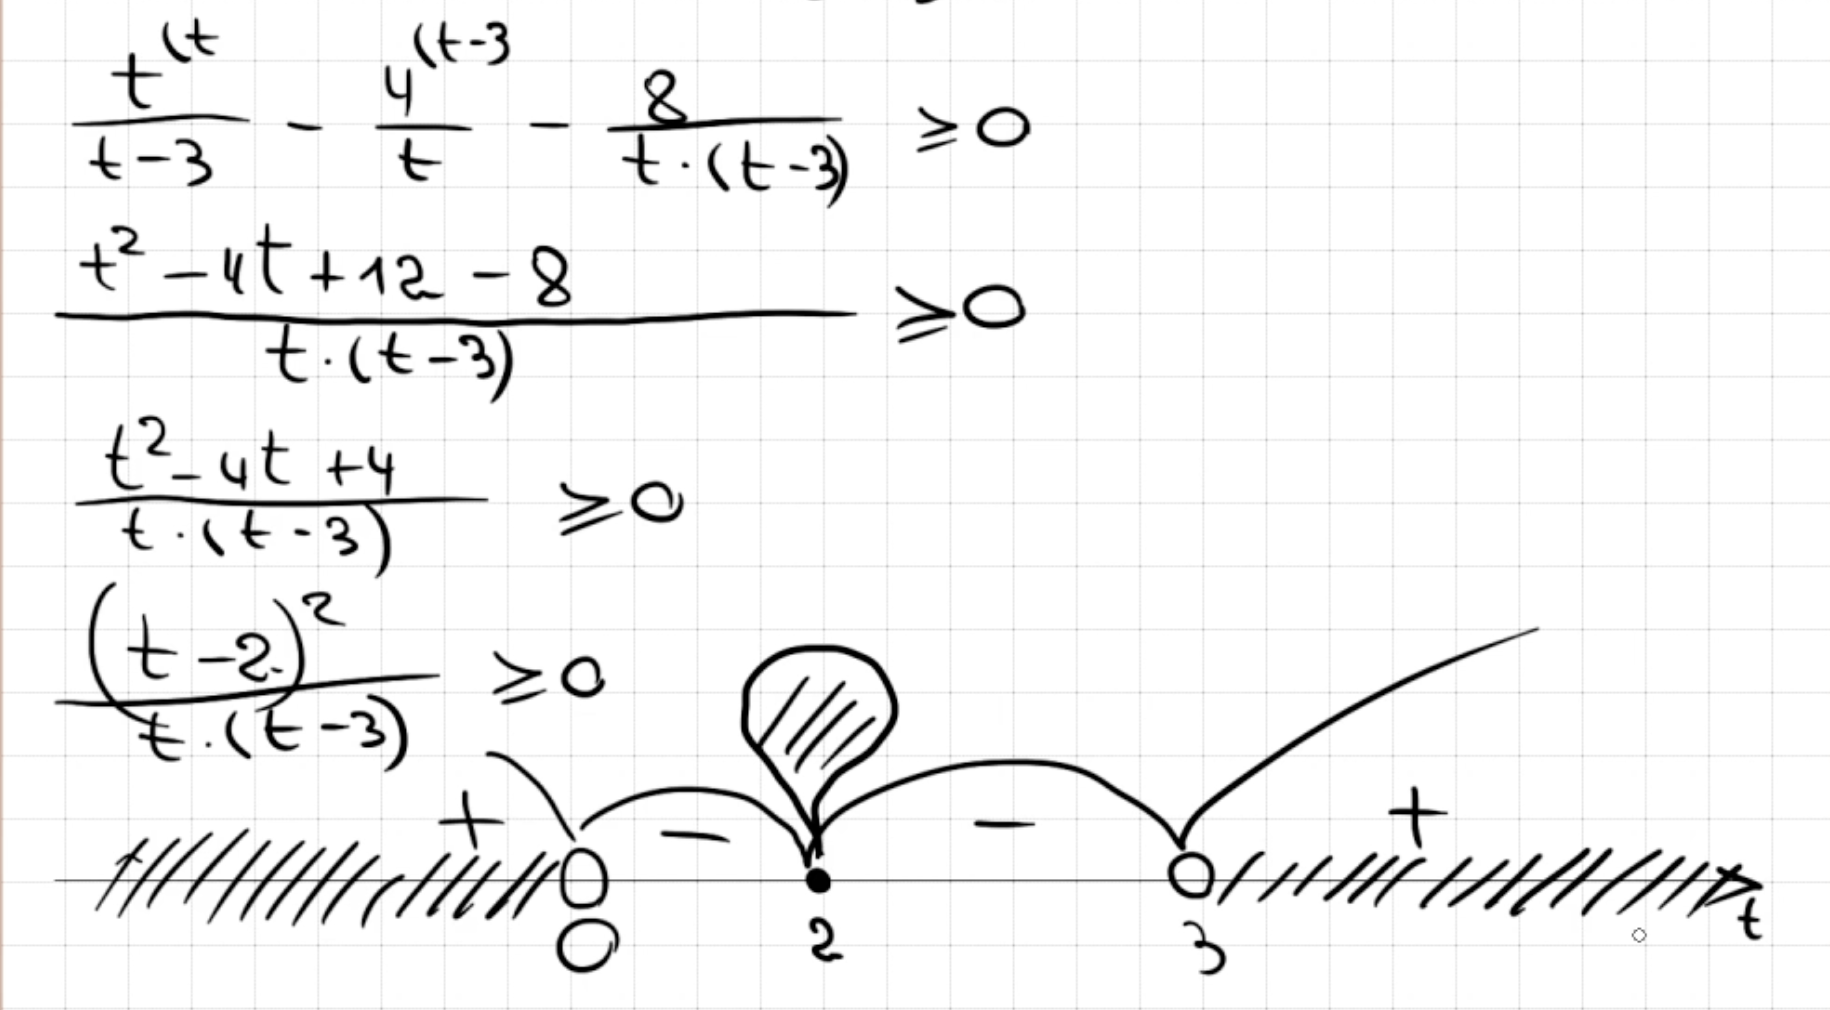 t^(t / t-3 - 4^(t-3 / t - 8 / t·(t-3) ≥ 0
t² - 4t + 12 - 8 / t·(t-3) ≥ 0
t² - 4t + 4 / t·(t-3) ≥ 0
(t-2)² / t·(t-3) ≥ 0
+ - - +
0 2 3 t